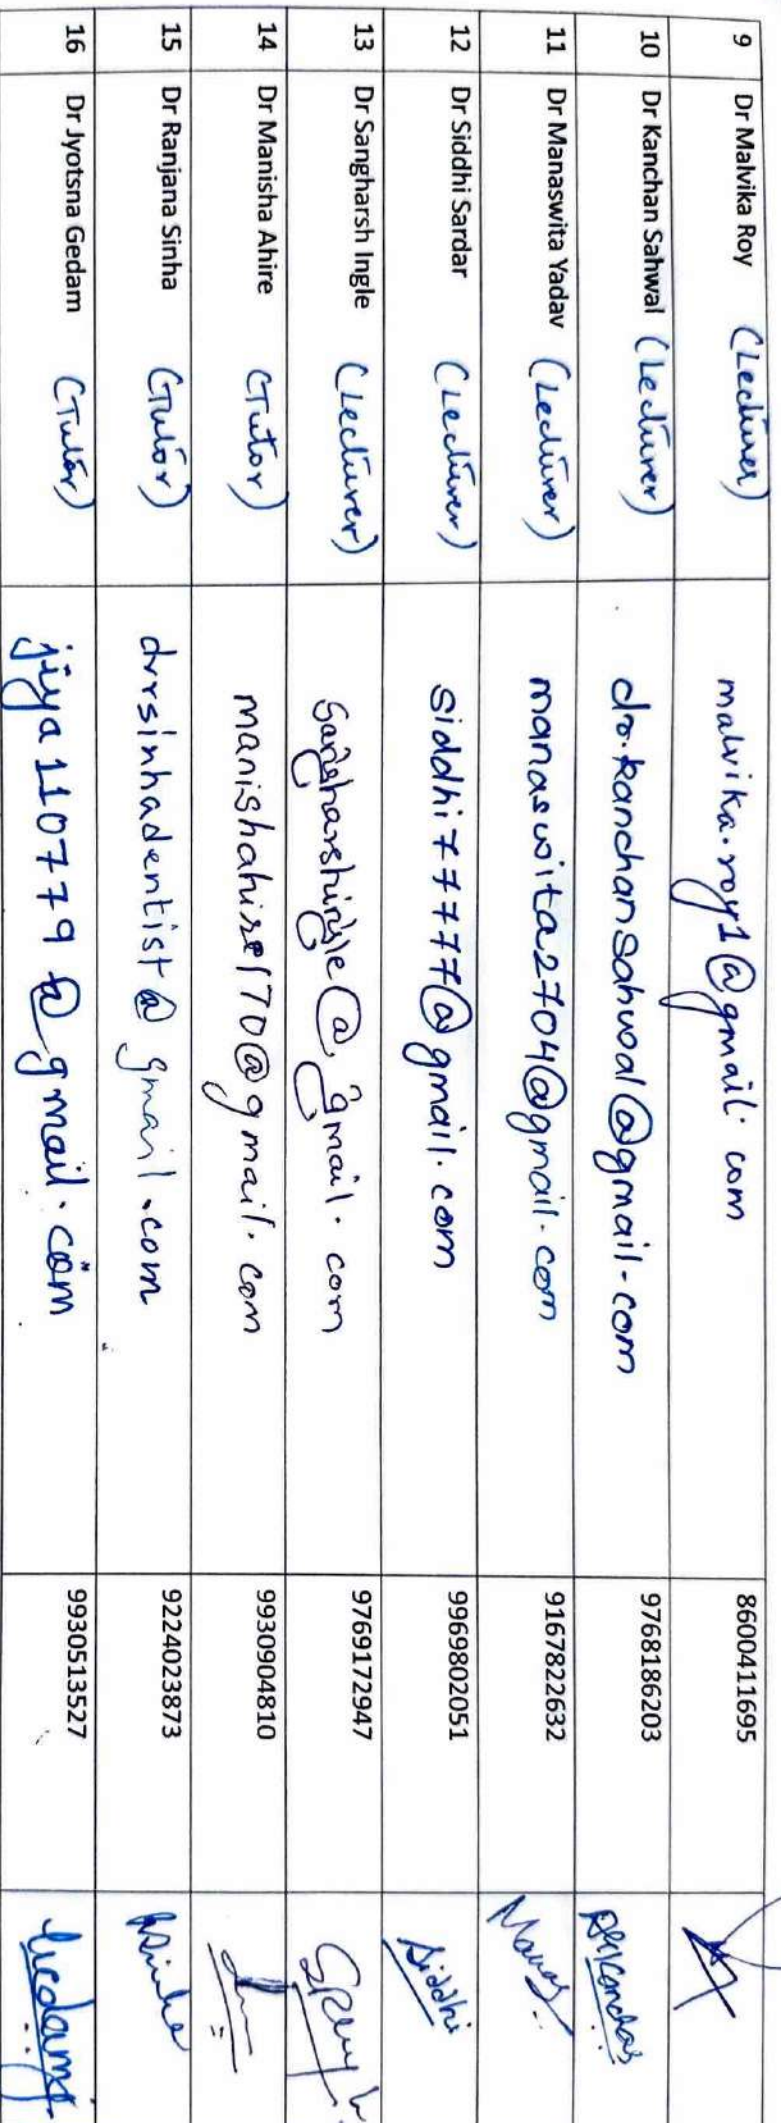 9 Dr Malvika Roy (Lecturer) malvika.roy1@gmail.com 8600411695
10 Dr Kanchan Sahwal (Lecturer) dr.kanchansahwal@gmail.com 9768186203
11 Dr Manaswita Yadav (Lecturer) manaswita2704@gmail.com 9167822632 Manas
12 Dr Siddhi Sardar (Lecturer) siddhi77777@gmail.com 9969802051 Siddhi
13 Dr Sangharsh Ingle (Lecturer) sangharshingle@gmail.com 9769172947
14 Dr Manisha Ahire (Tutor) manishahire170@gmail.com 9930904810
15 Dr Ranjana Sinha (Tutor) drrsinhadentist@gmail.com 9224023873 RSinha
16 Dr Jyotsna Gedam (Tutor) jiya110779@gmail.com 9930513527